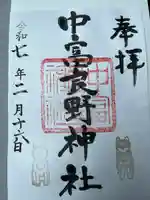 奉拝
中富長野神社
令和七年二月十六日